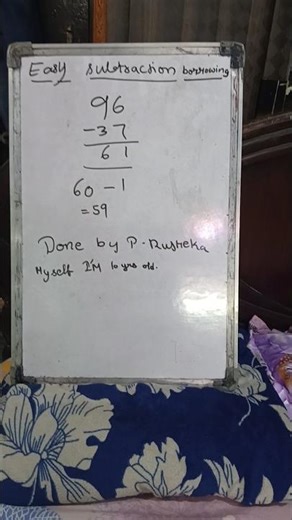 Easy subtraction borrowing
96
-37
61
60 -1
=59
Done by P. Rusheka
Myself I'M 10 yrs old.